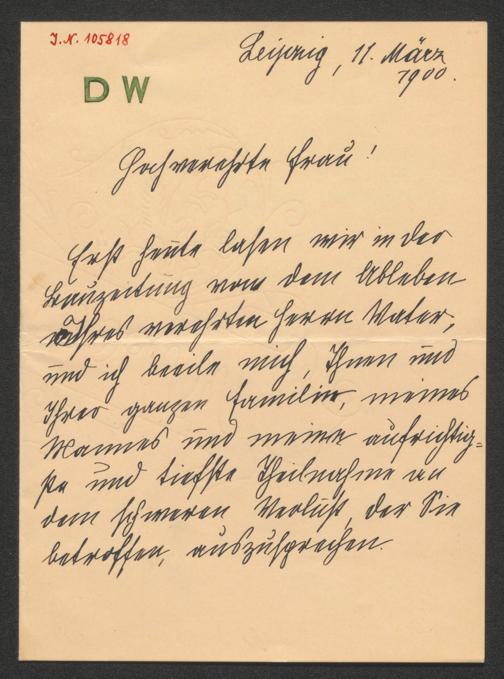 J.N. 105818
Leipzig, 11. März
1900.
D W
Hochverehrte Frau!
Erst heute lasen wir in der
Kreuzzeitung von dem Ableben
Ihres verehrten Herrn Vater,
und ich beeile mich, Ihnen und
Ihrer ganzen Familie, meines
Mannes und meine aufrichtig=
ste und tiefste Theilnahme an
dem schweren Verlust, der Sie
betroffen, auszusprechen.